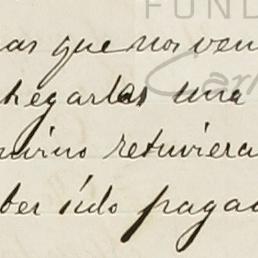 FUND
as que nos ven
hegarlas una
mino retuviera
ber sido pagad